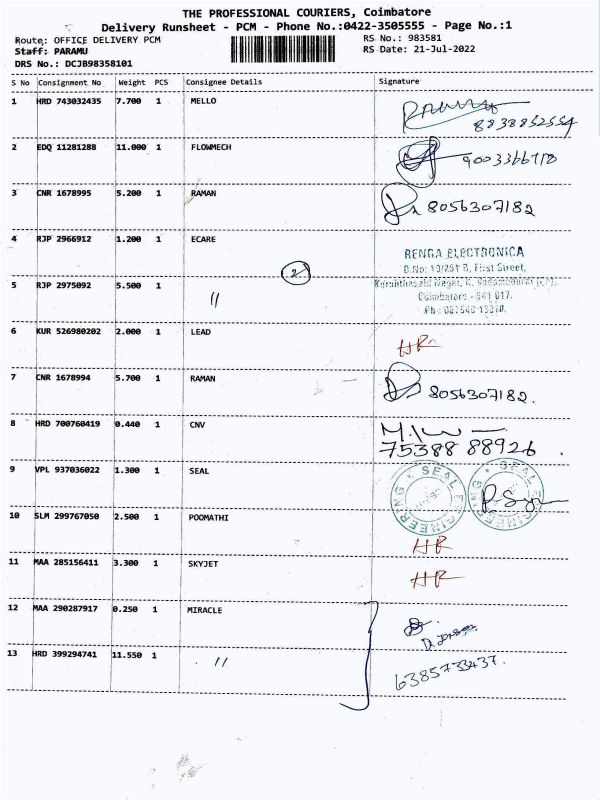 THE PROFESSIONAL COURIERS, Coimbatore
Delivery Runsheet - PCM - Phone No.:0422-3505555 - Page No.:1
Route: OFFICE DELIVERY PCM RS No.: 983581
Staff: PARAMU RS Date: 21-Jul-2022
DRS No.: DCJB98358101
S No Consignment No Weight PCS Consignee Details Signature
1 HRD 743032435 7.700 1 MELLO
8838852554
2 EDQ 11281288 11.000 1 FLOWMECH 9003366778
3 CNR 1678995 5.200 1 RAMAN 8056307182
4 RJP 2966912 1.200 1 ECARE
RENGA ELECTRONICA
First Street,
2
5 RJP 2975092 5.500 1 "
Coimbatore - 641 017.
6 KUR 526980202 2.000 1 LEAD
HR
7 CNR 1678994 5.700 1 RAMAN 8056307182.
8 HRD 700760419 0.440 1 CNV
75388 88926
9 VPL 937036022 1.300 1 SEAL
SEAL ENGINEERING SEAL ENGINEERING
10 SLM 299767050 2.500 1 POOMATHI
HR
11 MAA 285156411 3.300 1 SKYJET
HR
12 MAA 290287917 0.250 1 MIRACLE
13 HRD 399294741 11.550 1 "
6385733437.